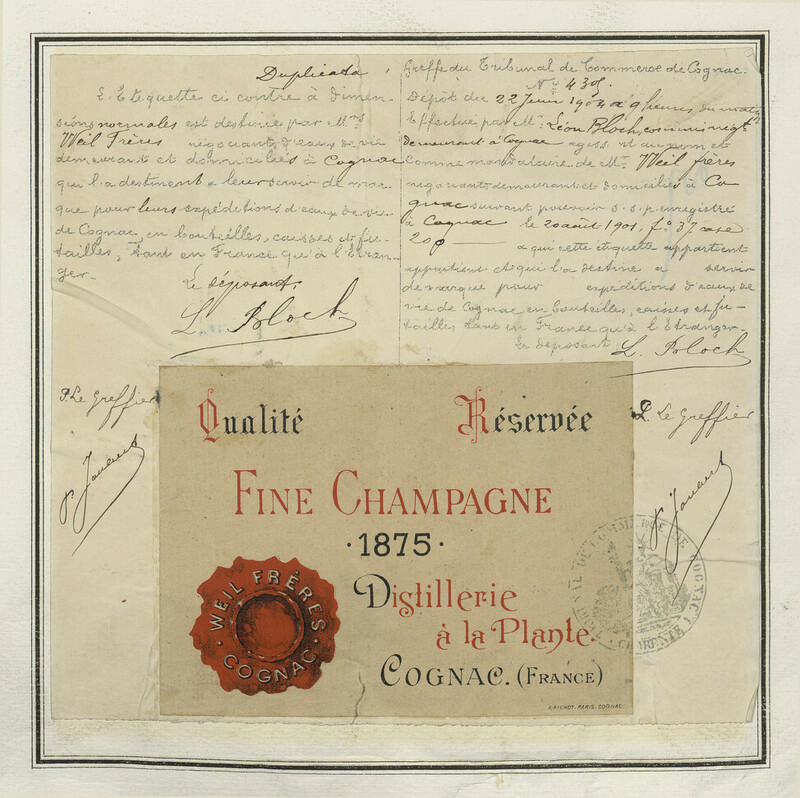 Duplicata
L'Etiquette ci contre à dimen-
sions normales est destinée par Mrs
Weil Frères négociants d'eaux de vie
demeurant et domiciliés à Cognac
qui l'a destinent a leur servir de mar-
que pour leurs expéditions d'eaux de vie
de Cognac, en bouteilles, caisses et fu-
tailles, tant en France qu'à l'Etran-
ger-
Le déposant,
L. Bloch
Greffe du Tribunal de Commerce de Cognac.
No 430.
Dépôt du 22 Juin 1904 à 9 heures du matin
Effectué par Mr Léon Bloch, commis négt
demeurant à Cognac agissant au nom et
comme mandataire de Mrs Weil frères
négociants demeurant et domiciliés à Co
gnac suivant pouvoir s.s.p. enregistré
à Cognac le 20 août 1901, fo 37 case
200
a qui cette étiquette appartient
appartient et qui l'a destine a servir
de marque pour expéditions d'eaux de
vie de Cognac en bouteilles, caisses et fu-
tailles tant en France qu'à l'Etranger-
Le deposant
L. Bloch
P. Le Greffier
P. Le Greffier
Qualité Réservée
FINE CHAMPAGNE
·1875·
Distillerie
à la Plante.
COGNAC. (FRANCE)
WEIL FRÈRES
· COGNAC ·
TRIBUNAL DE COMMERCE DE COGNAC
CHARENTE
E. PICHOT. PARIS. COGNAC